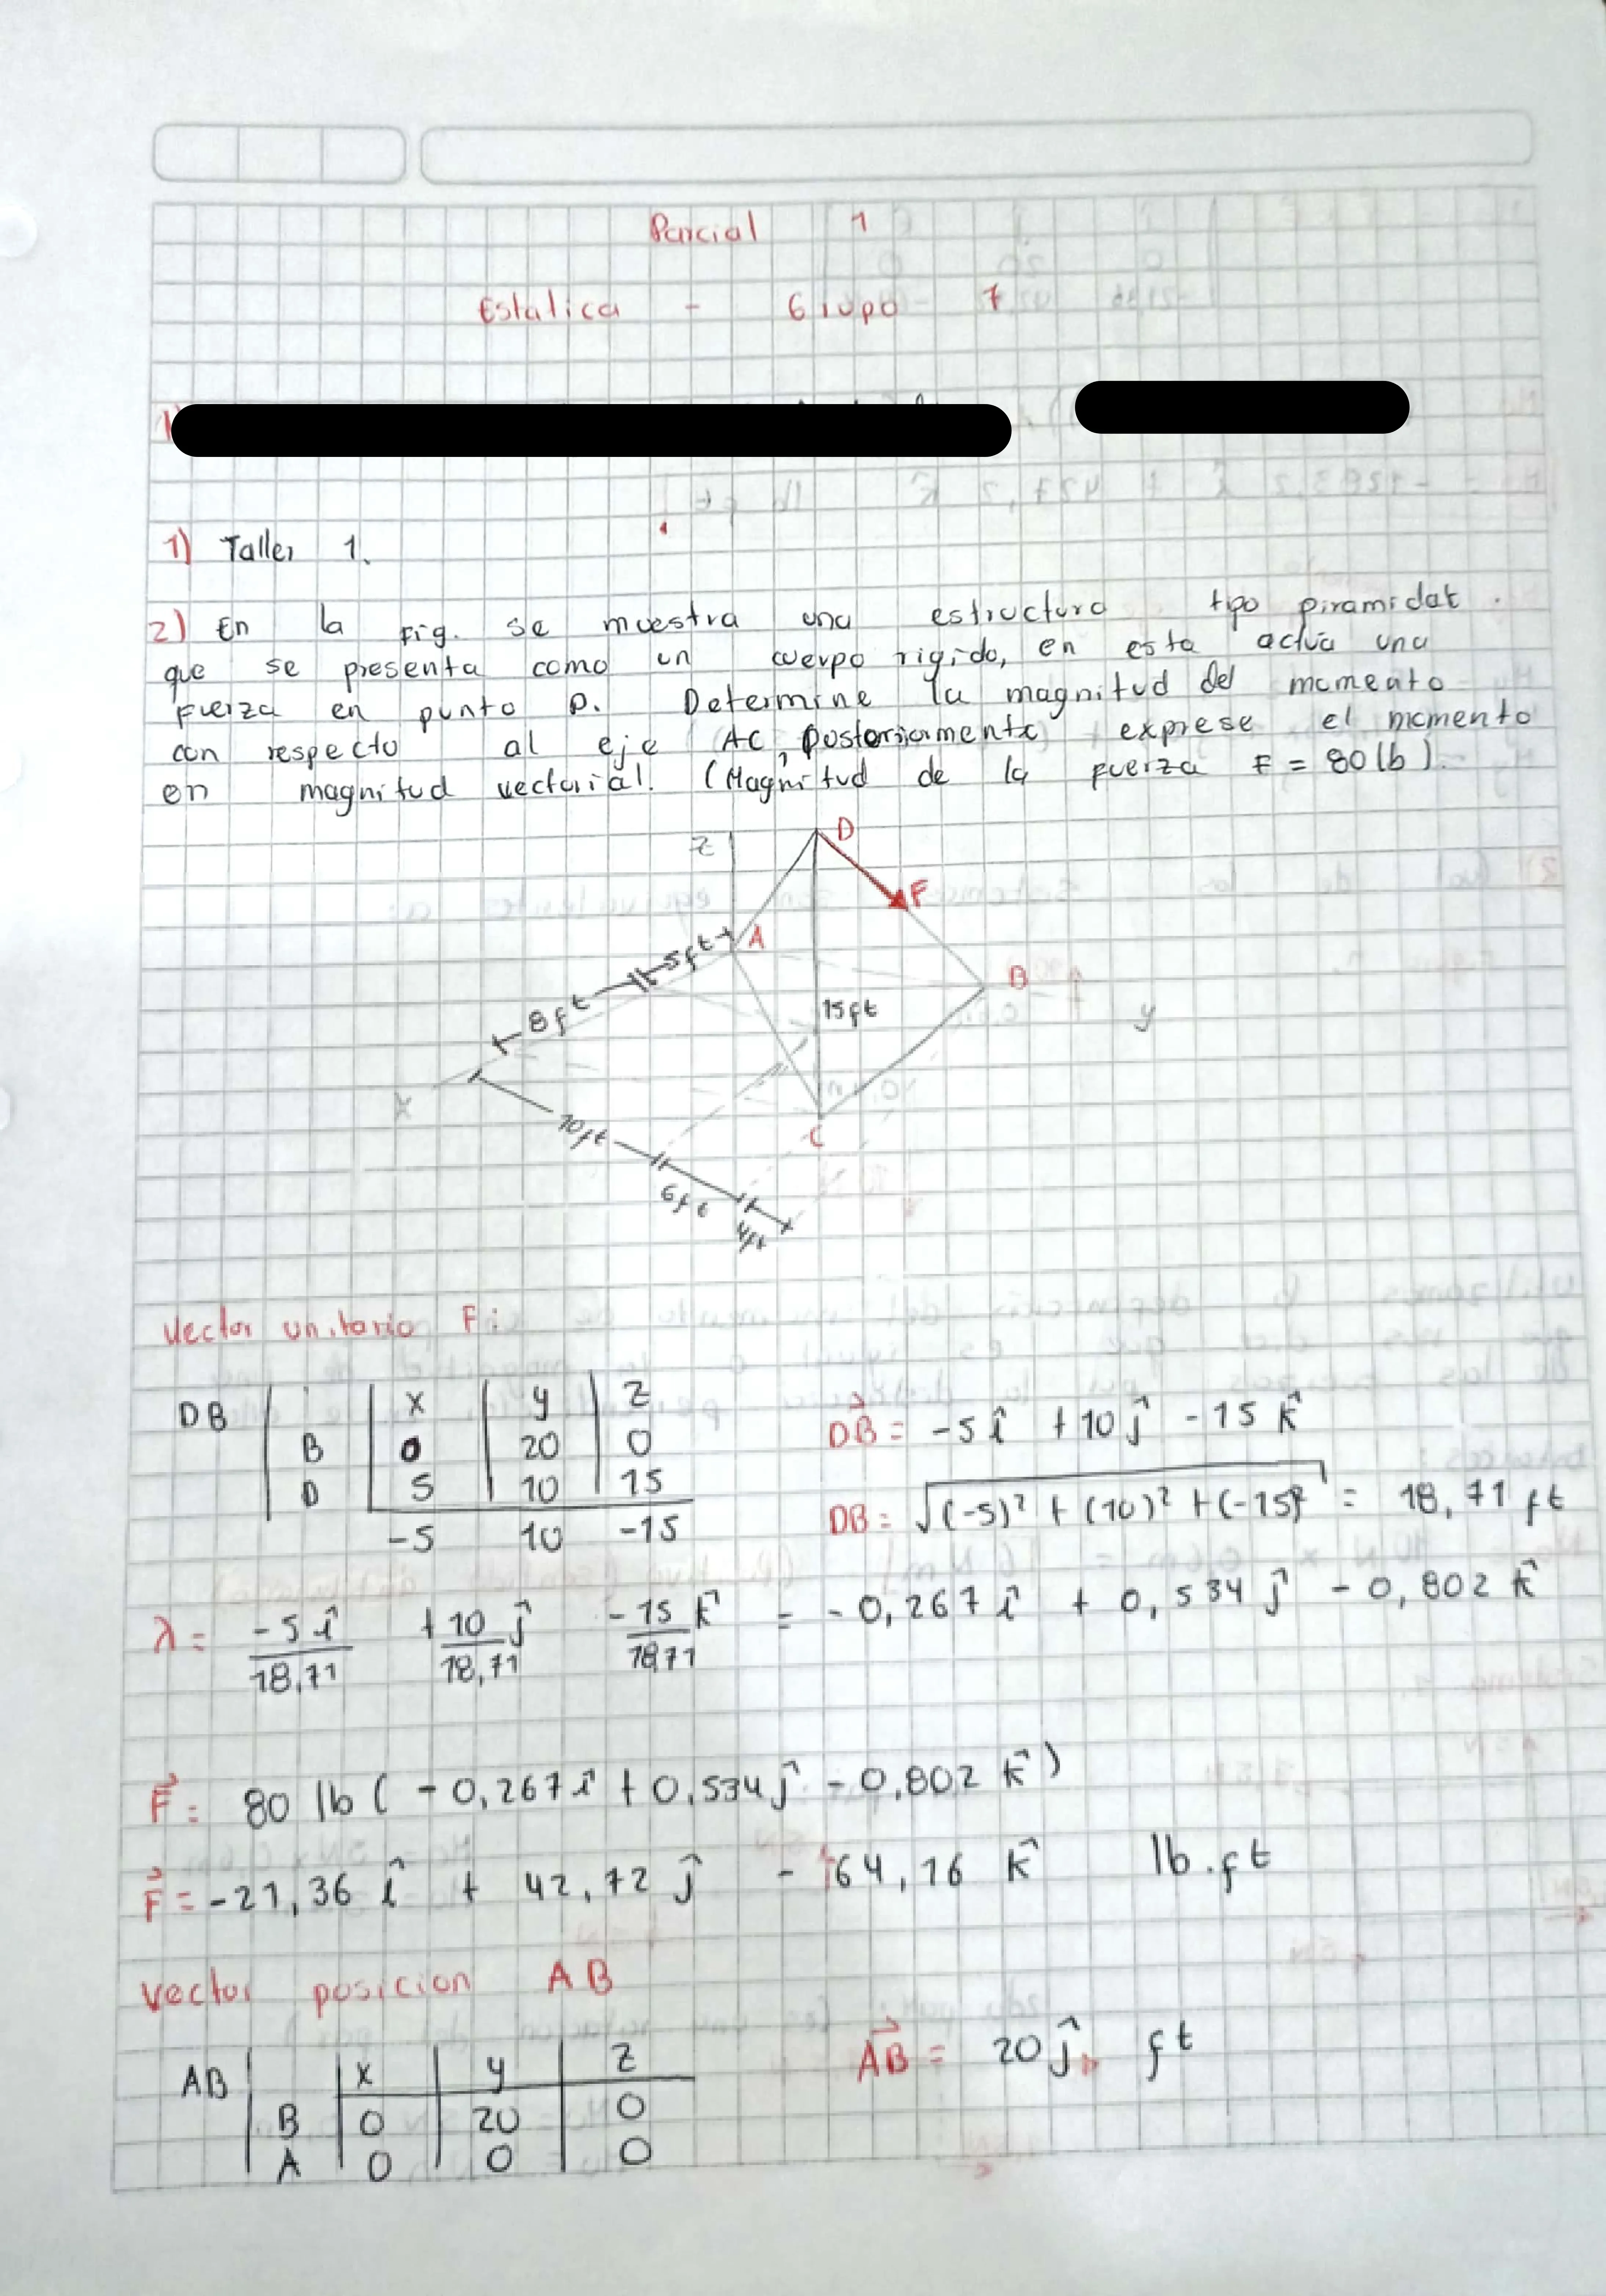 Parcial 1
Estatica - Grupo 7
1)
1) Taller 1.
2) En la Fig. se muestra una estructura tipo piramidal.
que se presenta como un cuerpo rigido, en esta actúa una
Fuerza en punto D. Determine la magnitud del momento
con respecto al eje AC, posteriormente exprese el momento
en magnitud vectorial. (Magnitud de la Fuerza F = 80 lb).
z D
F
A
5ft
B
8ft
15ft
y
x
10ft
C
6ft
4ft
Vector unitario F:
DB x y z
B 0 20 0
D 5 10 15
-5 10 -15
DB = -5 î + 10 ĵ - 15 k̂
DB = √(-5)² + (10)² + (-15)² = 18,71 ft
λ = -5 î/18,71 + 10/18,71 ĵ - 15/18,71 k̂ = -0,267 î + 0,534 ĵ - 0,802 k̂
F⃗ = 80 lb ( -0,267 î + 0,534 ĵ - 0,802 k̂ )
F⃗ = -21,36 î + 42,72 ĵ - 64,16 k̂ lb.ft
Vector posicion AB
AB x y z
B 0 20 0
A 0 0 0
AB = 20 ĵ ft